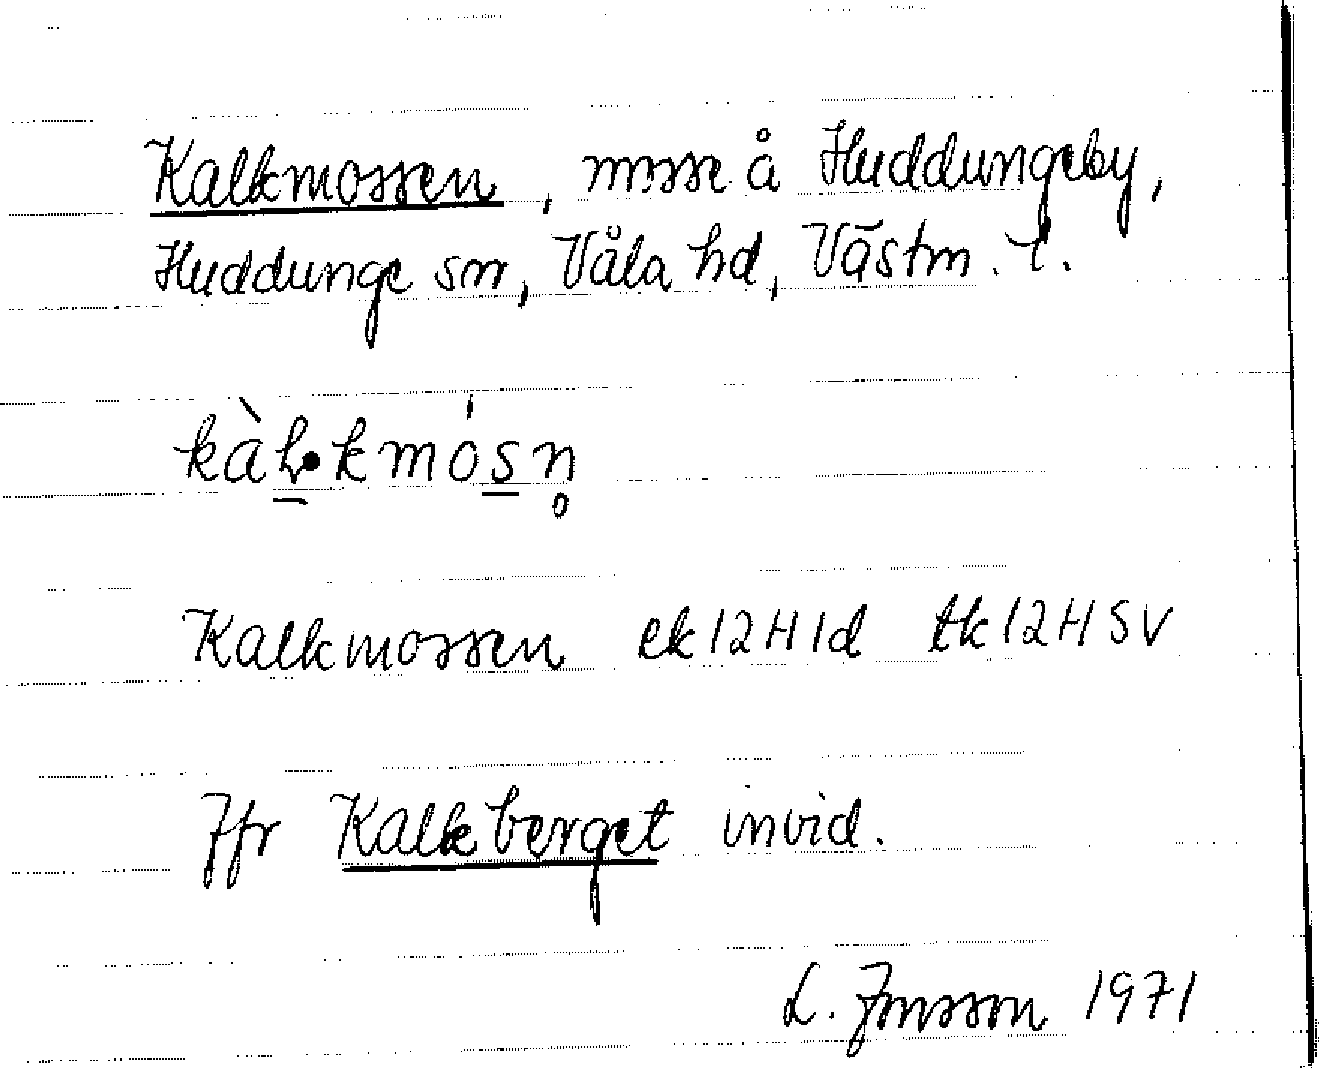 Kalkmossen, mosse å Huddungeby,
Huddunge sn, Våla hd, Västm. l.
kàl̠•kmós̠n̥
Kalkmossen ek 12H1d tk 12HSV
Jfr Kalkberget invid.
L. Jonsson 1971